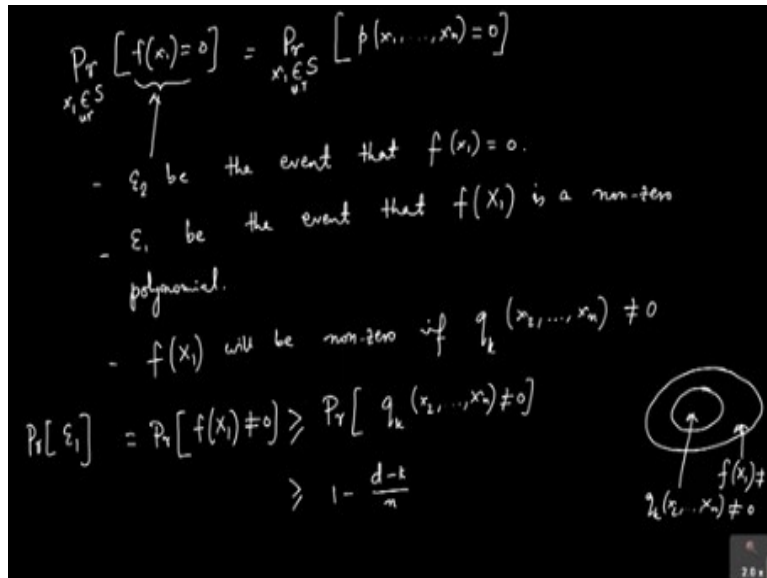 Pr [f(x₁)=0] = Pr [p(x₁, ..., xₙ)=0]
x₁ ∈ S x₁ ∈ S
ur ur
- ε₂ be the event that f(x₁) = 0.
- ε₁ be the event that f(X₁) is a non-zero
polynomial.
- f(X₁) will be non-zero if q_k (x₂, ..., xₙ) ≠ 0
Pr[ε₁] = Pr[f(X₁) ≠ 0] ≥ Pr[q_k (x₂, ..., xₙ) ≠ 0]
≥ 1 - (d-k)/n
f(X₁) ≠
q_k(x₂, .. xₙ) ≠ 0
2.0x